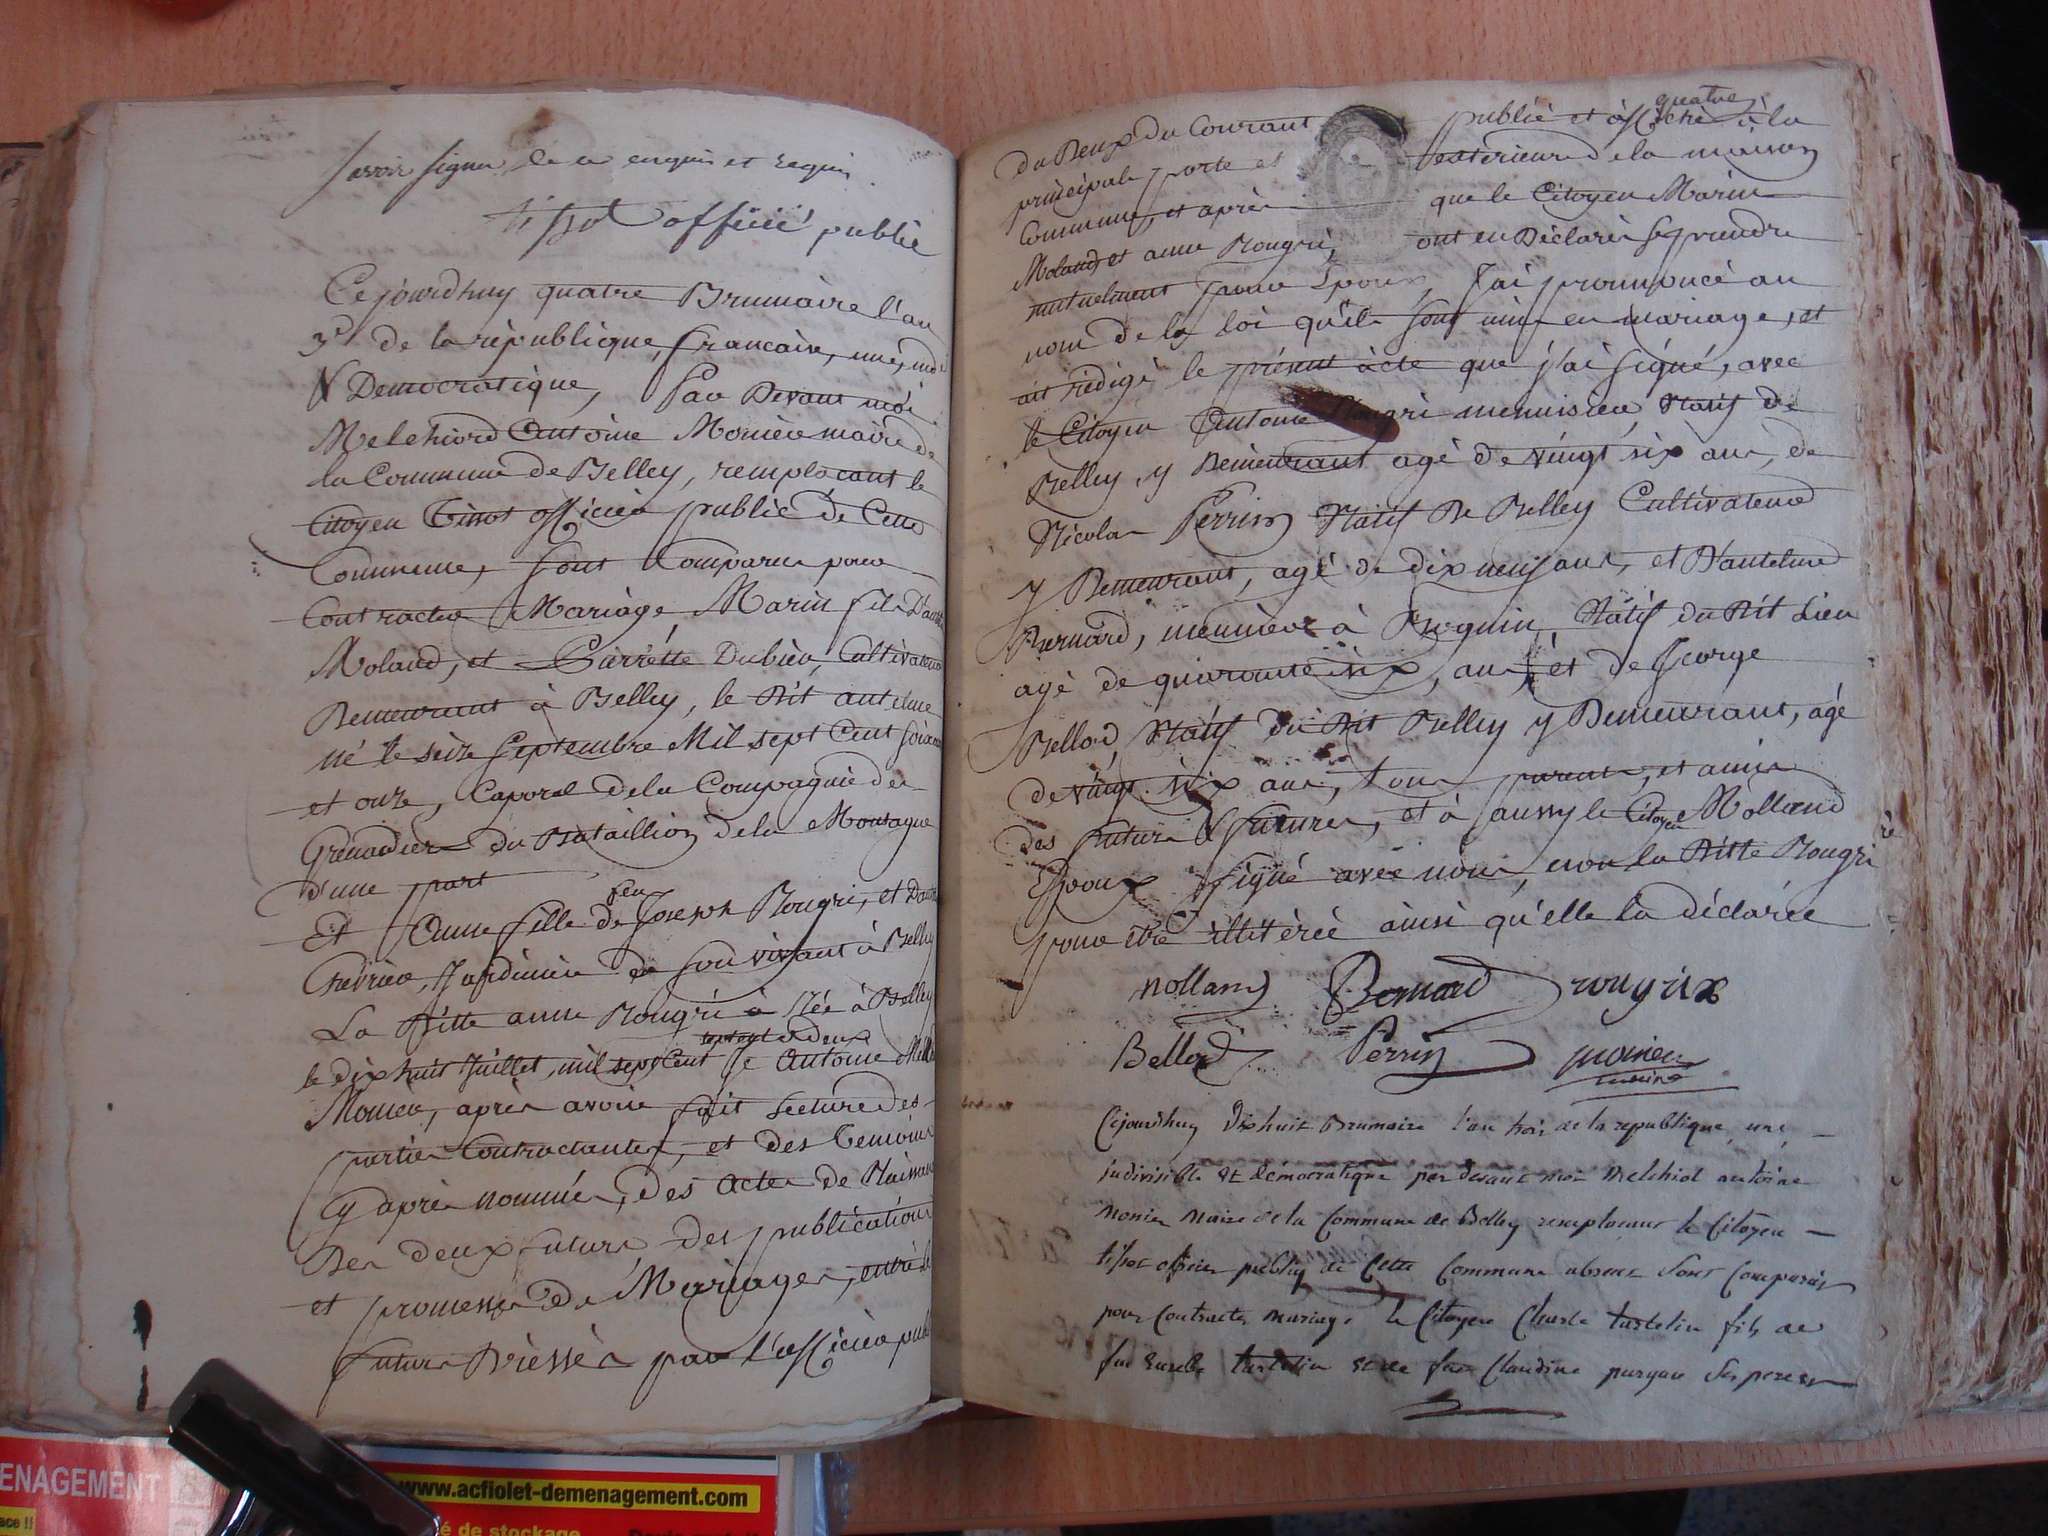 savoir signer de ce enquis et requis
tissot officié public
Cejourdhuy quatre Brumaire l'an
3e de la république francaise, une, indi
& Democratique, Par Devant moi
Melchiord Antoine Monier maire de
la Commune de Belley, remplacant le
Citoyen Tissot officier public de Cette
Commune, sont Comparus pour
Contracter Mariage, Marin fils D'anthe
Moland, et Pierrette Dubieu, Cultivateur
Demeurant à Belley, le Dit antelme
né le seize septembre Mil sept Cent soixan
et onze, Caporal de la Compagnie des
Grenadiers du Bataillion de la Montagne
d'une part
Et Anne fille de feu Joseph Rougri, et Dan
Chevrier, Jardinier de son vivant à Belley
La Ditte anne Rougri à Née à Belley
le dix huit Juillet, mil sept Cent septent deux Je Antoine Melch
Monier, après avoir fait Lecture des
parties Contractantes, et des temoins
Cy après nommés, des Actes de Naissan
Des deux futurs des publications
et promesses de Mariages, entre le
futurs Dressés par l'officier publ
du Deux du Courant publié et affiché quatre à la
principale porte et exterieure de la maison
Commune, et après que le Citoyen Marin
Moland et anne Rougri, ont eu Déclarés se prendre
mutuelment pour Epoux, J'ai prononcé au
nom de la loi qu'ils sont unis en mariage, et
ait rédigé le présent acte que j'ai signé, avec
le Citoyen Antoine Rougri menuisier, Natif de
Belley, y Demeurant agé de vingt six ans, de
Nicolas Perrin Natif De Belley Cultivateur
y Demeurant, agé de dix neuf ans, et D'antelme
Bernard, meunier à Proquin, Natif du Dit Lieu
agé de quarante six, ans, et de George
Bellod Natif du Dit Belley y Demeurant, agé
de vingt six ans, tous parents, et amis
des futurs & futures, et à aussy le Citoyen Molland
Epoux signé avec nous, non la Ditte Rougri
pour être illitérée ainsi qu'elle la déclarée
molland Bernard rougrix
Bellod Perrin monier
Cejourdhuy Dixhuit Brumaire l'an trois de la republique une
indivisible et démocratique par devant moi Melchiol antoine
monier Maire de la Commune de Belley remplacant le Citoyen
tissot officier publiq de Cette Commune absent sont Comparus
pour Contracter mariage le Citoyen Charle tartelin fils de
feu tartelin et de feue Claudine ses peres et
ENAGEMENT
www.acfiolet-demenagement.com
ace !!
é de stockage